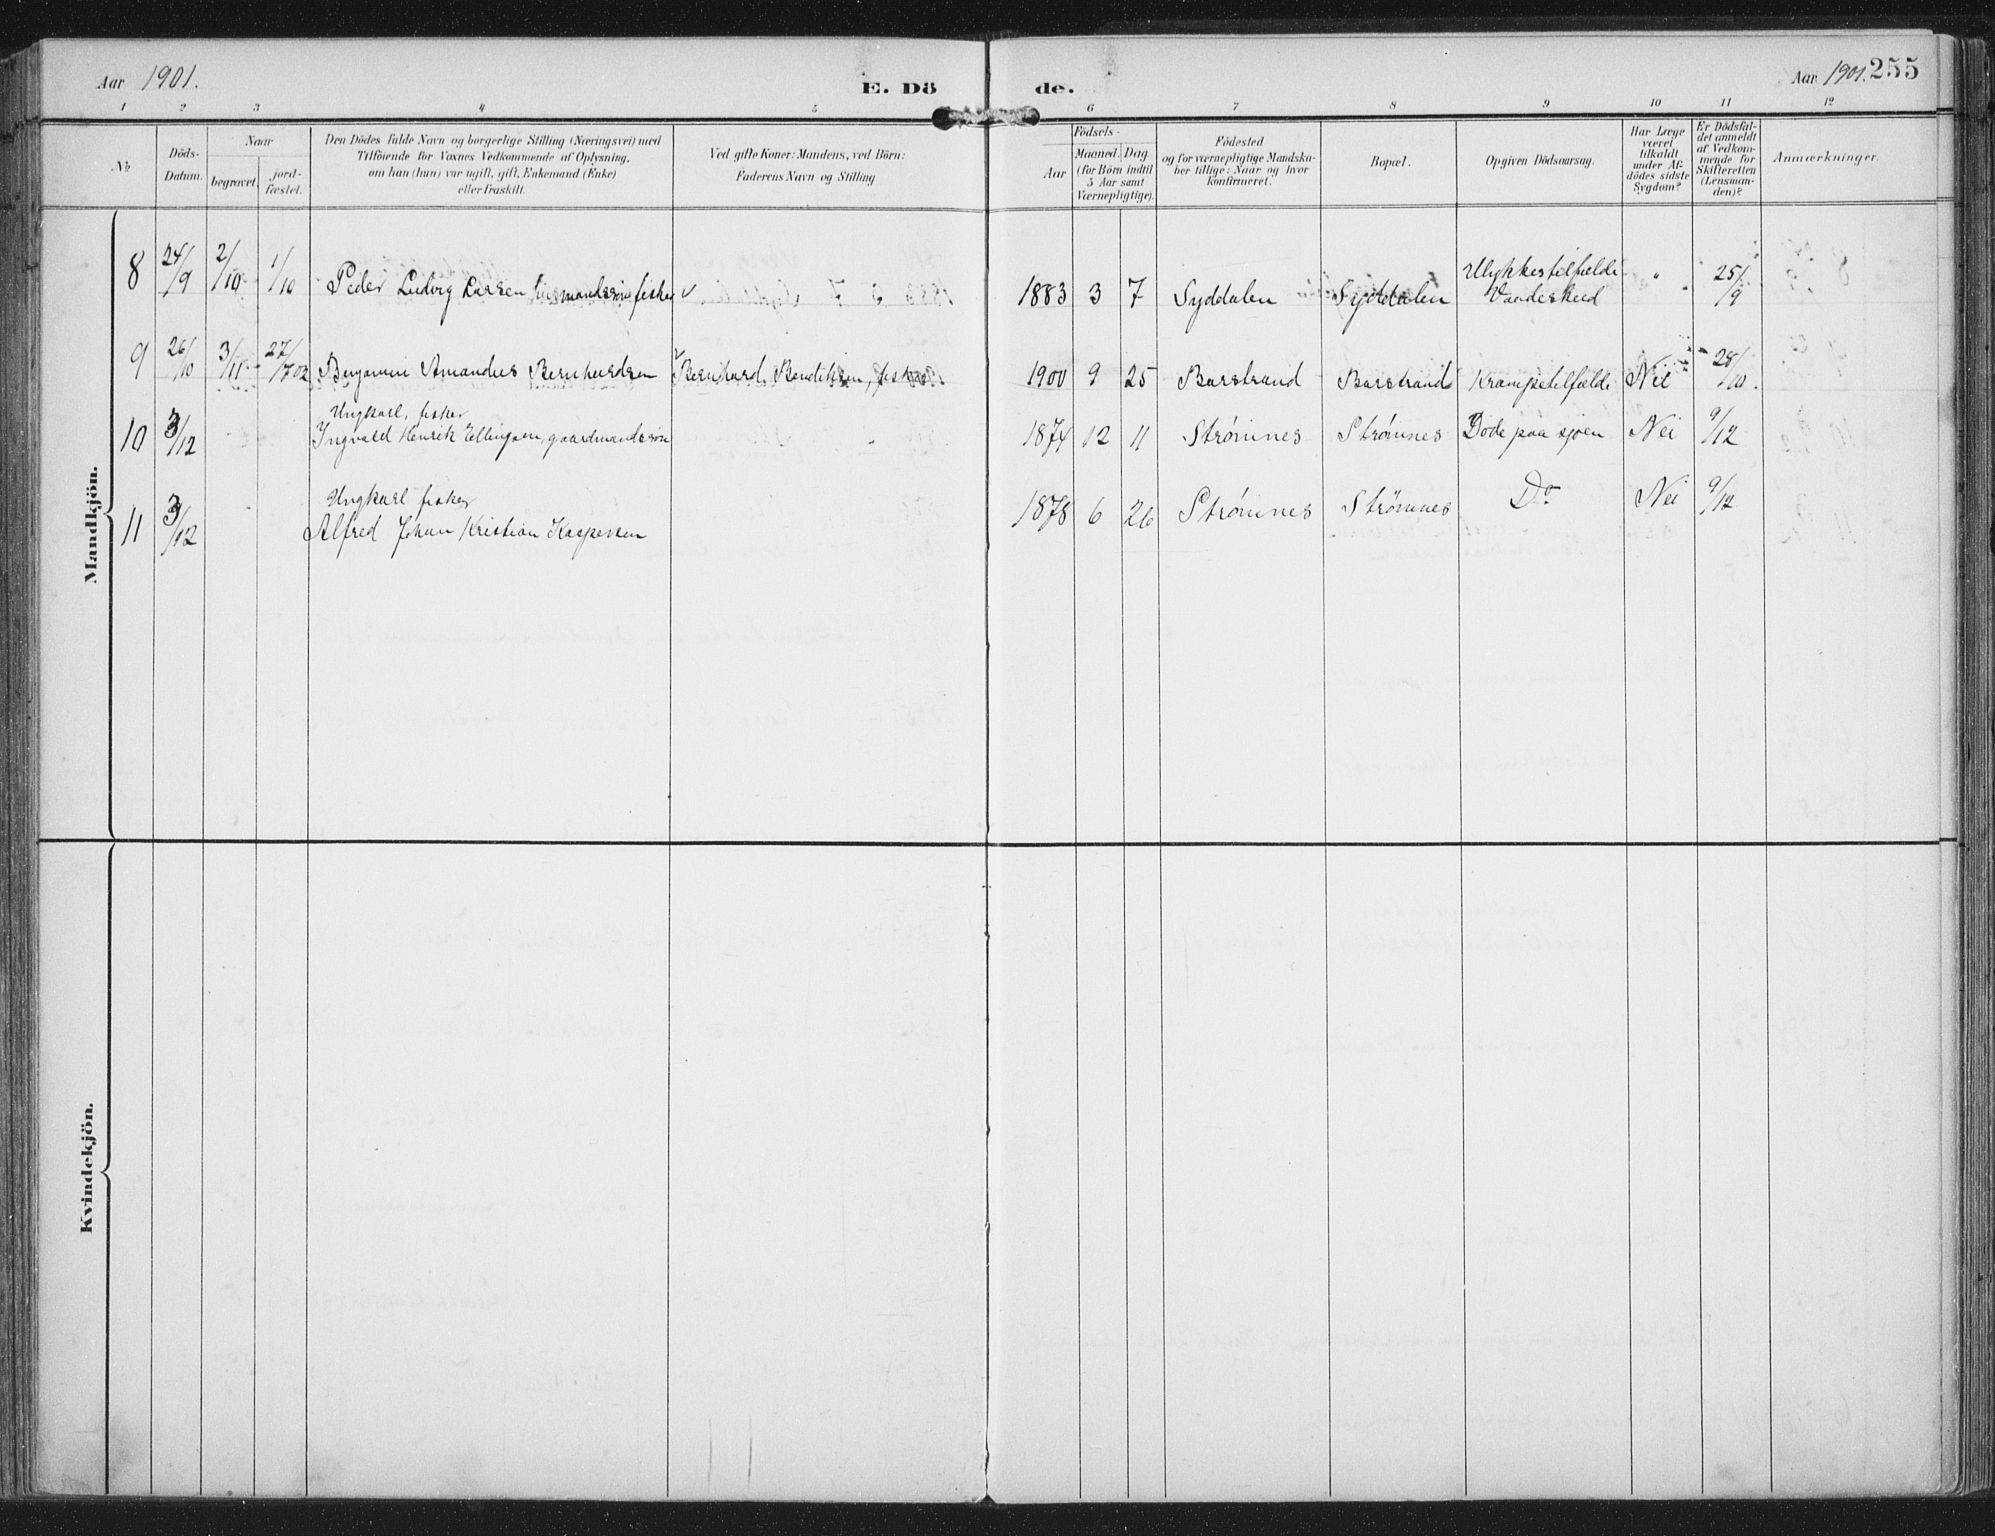 Aar 1901. E. Dö de. Aar 1901. 255
1 2 3 4 5 6 7 8 9 10 11 12
№
Döds-Datum.
Naar
begravet.
jordfæstet.
Den Dödes fulde Navn og borgerlige Stilling (Næringsvei) med
Tilföiende for Voxnes Vedkommende af Oplysning,
om han (hun) var ugift, gift, Enkemand (Enke)
eller fraskilt.
Ved gifte Koner: Mandens, ved Börn:
Faderens Navn og Stilling
Födsels-
Aar
Maaned. Dag.
(for Börn indtil
5 Aar samt
Værnepligtige).
Födested
og for værnepligtige Mandska-
ber tillige: Naar og hvor
konfirmeret.
Bopæl.
Opgiven Dödsaarsag.
Har Læge
været
tilkaldt
under Af-
dödes sidste
Sygdom?
Er Dödsfal-
det anmeldt
af Vedkom-
mende for
Skifteretten
(Lensman-
den)?
Anmærkninger.
Mandkjön.
8 24/9 2/10 1/10 Peder Ludvig Larsen husmandssøn fisker 1883 3 7 Syddalen Syddalen Ulykkestilfælde Vaadeskud " 25/9
9 26/10 3/11 27/7 02 Benjamin Amandus Bernhardsen Bernhard Bendiksen, fisker 1900 9 25 Barstrand Barstrand Krampetilfælde Nei 28/10.
Ungkarl, fisker
10 3/12 Ingvald Henrik Ellingsen, gaardmandssøn 1874 12 11 Strømnes Strømnes Døde paa sjøen Nei 9/12
Ungkarl fisker
11 3/12 Alfred Johan Kristian Kaspersen 1878 6 26 Strømnes Strømnes Do Nei 9/12
Kvindekjön.